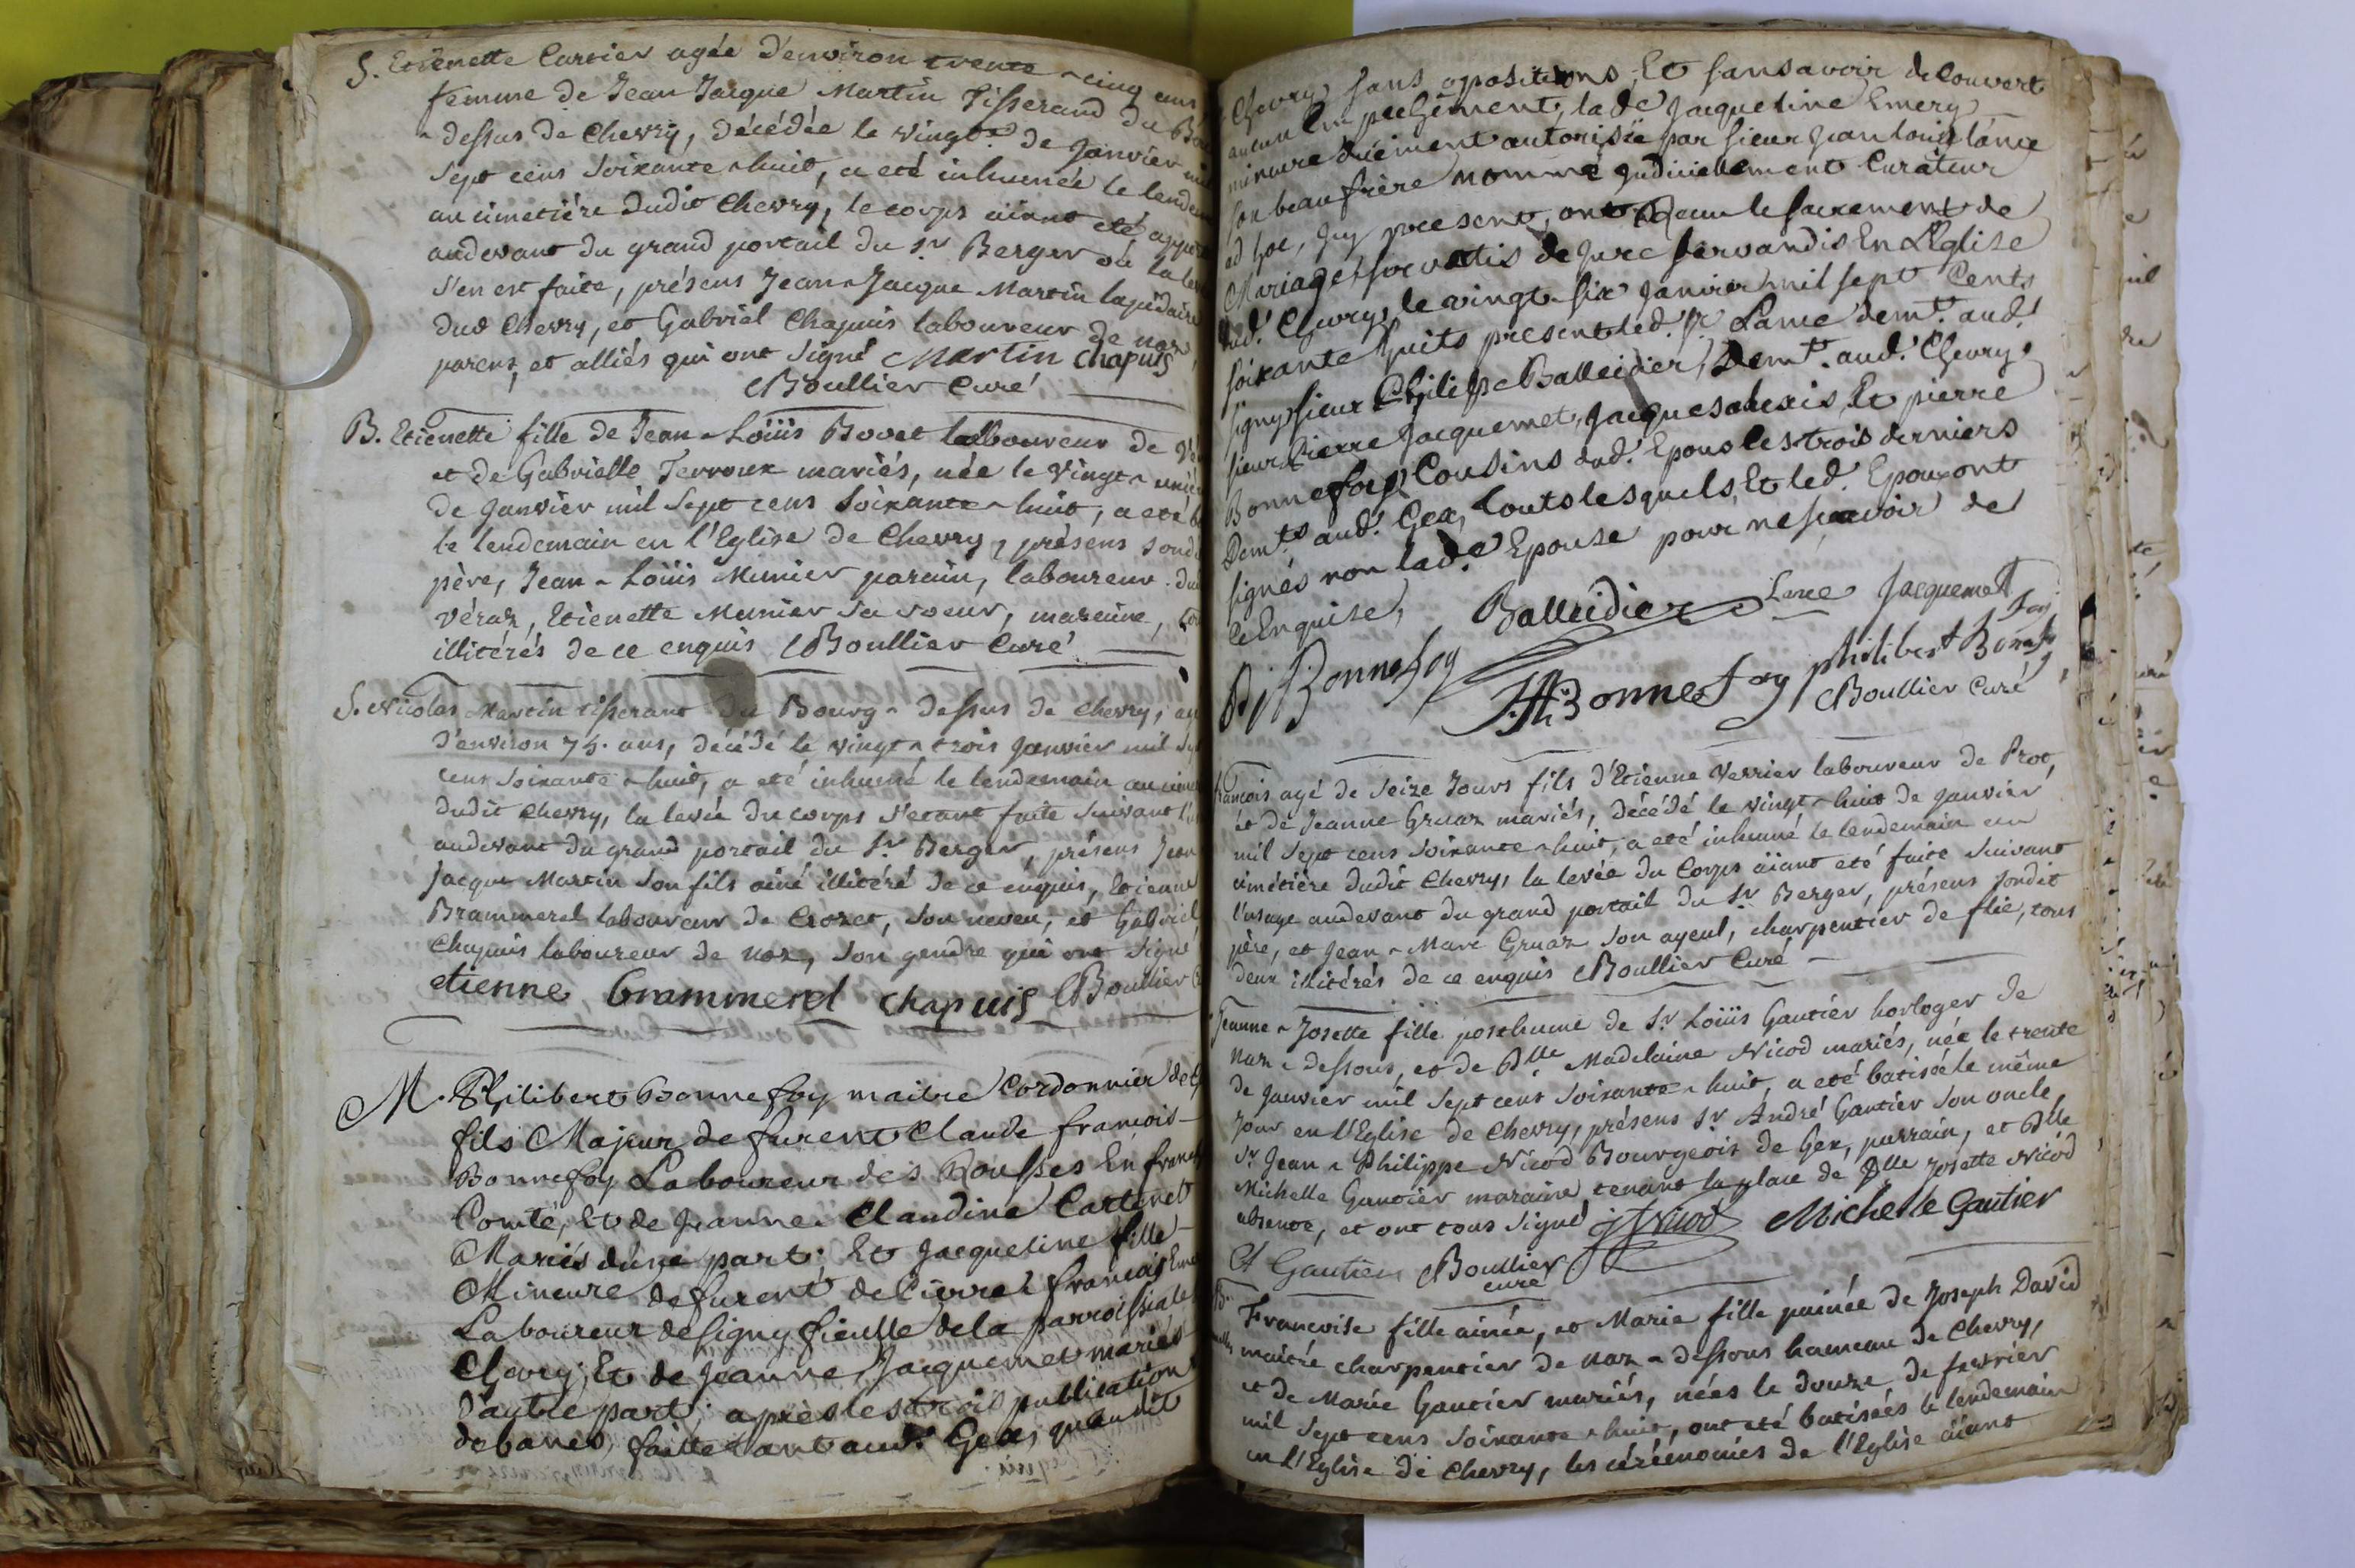 S. Etiènette Cartier agée d'environ trente-cinq ans
femme de Jean Jacque Martin Tisserand du
dessus de Chevry, décédée le vingt de Janvier mil
sept cens soixante-huit, a eté inhumée le lendem
au cimetiére dudit Chevry, le corps aïant eté
audevant du grand portail du Sr Berger où la
s'en est faite, présens Jean-Jacque Martin lapidaire
dud Chevry, et Gabriel Chapuis laboureur de naz
parens, et alliés qui ont signé Martin Chapuis
Boullier Curé
B. Etienette fille de Jean-Loüis Bovet laboureur de
et de Gabrielle Terroux mariés, née le Vingt-
de Janvier mil sept cens soixante-huit, a eté
le lendemain en l'Eglise de Chevry, présens sond
père, Jean-Loüis Munier parain, laboureur du
Véraz, Etienette Munier sa soeur, maraine,
illitérés de ce enquis Boullier Curé
S. Nicolas Martin tisserant du Bourg-dessus de Chevry,
d'environ 75. ans, décédé le vingt-trois Janvier mil
cens soixante-huit, a eté inhumé le lendemain au
dudit Chevry, la levée du corps s'etant faite suivant
audevant du grand portail du Sr Berger, présens Jean
Jacque Martin son fils ainé illitéré de ce enquis, Etienne
Brammerel laboureur de Crozet, son neveu, et Gabriel
Chapuis laboureur de naz, son gendre qui ont signé
etienne brammerel chapuis Boullier
M. Philibert Bonnefoy maitre Cordonnier de
fils Majeur defurent Claude françois
Bonnefoy Laboureur des Rousses En
Comté, Et de Jeanne Claudine Cartenet
Mariés d'une part; Et Jacqueline fille
Mineure defurent de Pierre françois
Laboureur de Signy fieulle de la parroissiale
Chevry, Et de Jeanne Jacquemet mariés
D'autre part; après les trois publication
de banes, faitte tant aud. Gex, qu'audit
Chevry, sans opositions, Et sans avoir decouvert
aucun Empechement; lade Jacqueline Emery
mineure düement autorisée par sieur Jean louis lance
son beaufrère nommé judiciellement Curateur
ad hoc, Icy present, ont Reçeu le sacrement de
Mariage, servatis de jure servandis En L'Eglise
dud. Chevry, le vingt-six Janvier mil sept Cents
soixante huits present led. Sr Lance demt. aud.
signy, sieur Philipe Balleidier, Demt. aud. Chevry,
sieur Pierre Jacquemet, Jacques alexis, Et pierre
Bonnefoy, Cousins dud. Epoux les trois derniers
Demts. aud. Gex, touts lesquels, Et led. Epoux ont
signés non lad.e Epouse pour ne sçavoir de
ce Enquise,
Balleidier Lance Jacquemet
PJ Bonnefoy JA Bonnefoy philibert Bonefoy
Boullier Curé
françois agé de seize Jours fils d'Etienne Verrier laboureur de Prot,
et de Jeanne Gruaz mariés, décédé le vingt-huit de Janvier
mil sept cens soixante-huit, a eté inhumé le lendemain au
cimétière dudit Chevry, la levée du Corps aïant eté faite suivant
l'usage audevant du grand portail du Sr Berger, présens sondit
père, et Jean-Marc Gruaz son ayeul, charpentier de flie, tous
deux illitérés de ce enquis Boullier Curé
Jeanne-Josette fille posthume de Sr Loüis Gautier horloger de
naz-dessous, et de Dlle Madelaine Nicod mariés, née le trente
de Janvier mil sept cens soixante-huit, a eté batisée le même
Jour en l'Eglise de Chevry, présens Sr André Gautier son oncle,
Sr Jean-Philippe Nicod Bourgeois de Gex, parrain, et Dlle
Michelle Gautier maraine tenant la place de Dlle Josette Nicod
absente, et ont tous signé jp Nicod Michelle Gautier
A Gautier Boullier
curé
Francoise fille ainée, et Marie fille puinée de Joseph David
maitre charpentier de naz-dessous hameau de Chevry,
et de Marie Gautier mariés, nées le douze de fevrier
mil sept cens soixante-huit, ont eté batisées le lendemain
en l'Eglise de Chevry, les cérémonies de l'Eglise aïant